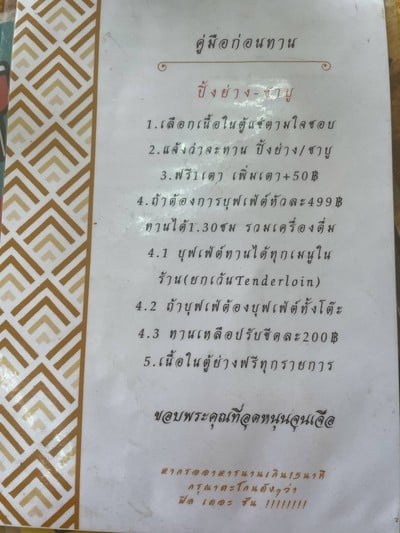 คู่มือก่อนทาน
ปิ้งย่าง-ชาบู
1.เลือกเนื้อในตู้แช่ตามใจชอบ
2.แจ้งว่าจะทาน ปิ้งย่าง/ชาบู
3.ฟรี1เตา เพิ่มเตา+50฿
4.ถ้าต้องการบุฟเฟ่ต์หัวละ499฿
ทานได้1.30ชม รวมเครื่องดื่ม
4.1 บุฟเฟ่ต์ทานได้ทุกเมนูใน
ร้าน(ยกเว้นTenderloin)
4.2 ถ้าบุฟเฟ่ต้องบุฟเฟ่ต์ทั้งโต๊ะ
4.3 ทานเหลือปรับขีดละ200฿
5.เนื้อในตู้ย่างฟรีทุกรายการ
ขอบพระคุณที่อุดหนุนจุนเจือ
หากรออาหารนานเกิน15นาที
กรุณาตะโกนดังๆว่า
ฟิล เดอะ ซัน !!!!!!!!